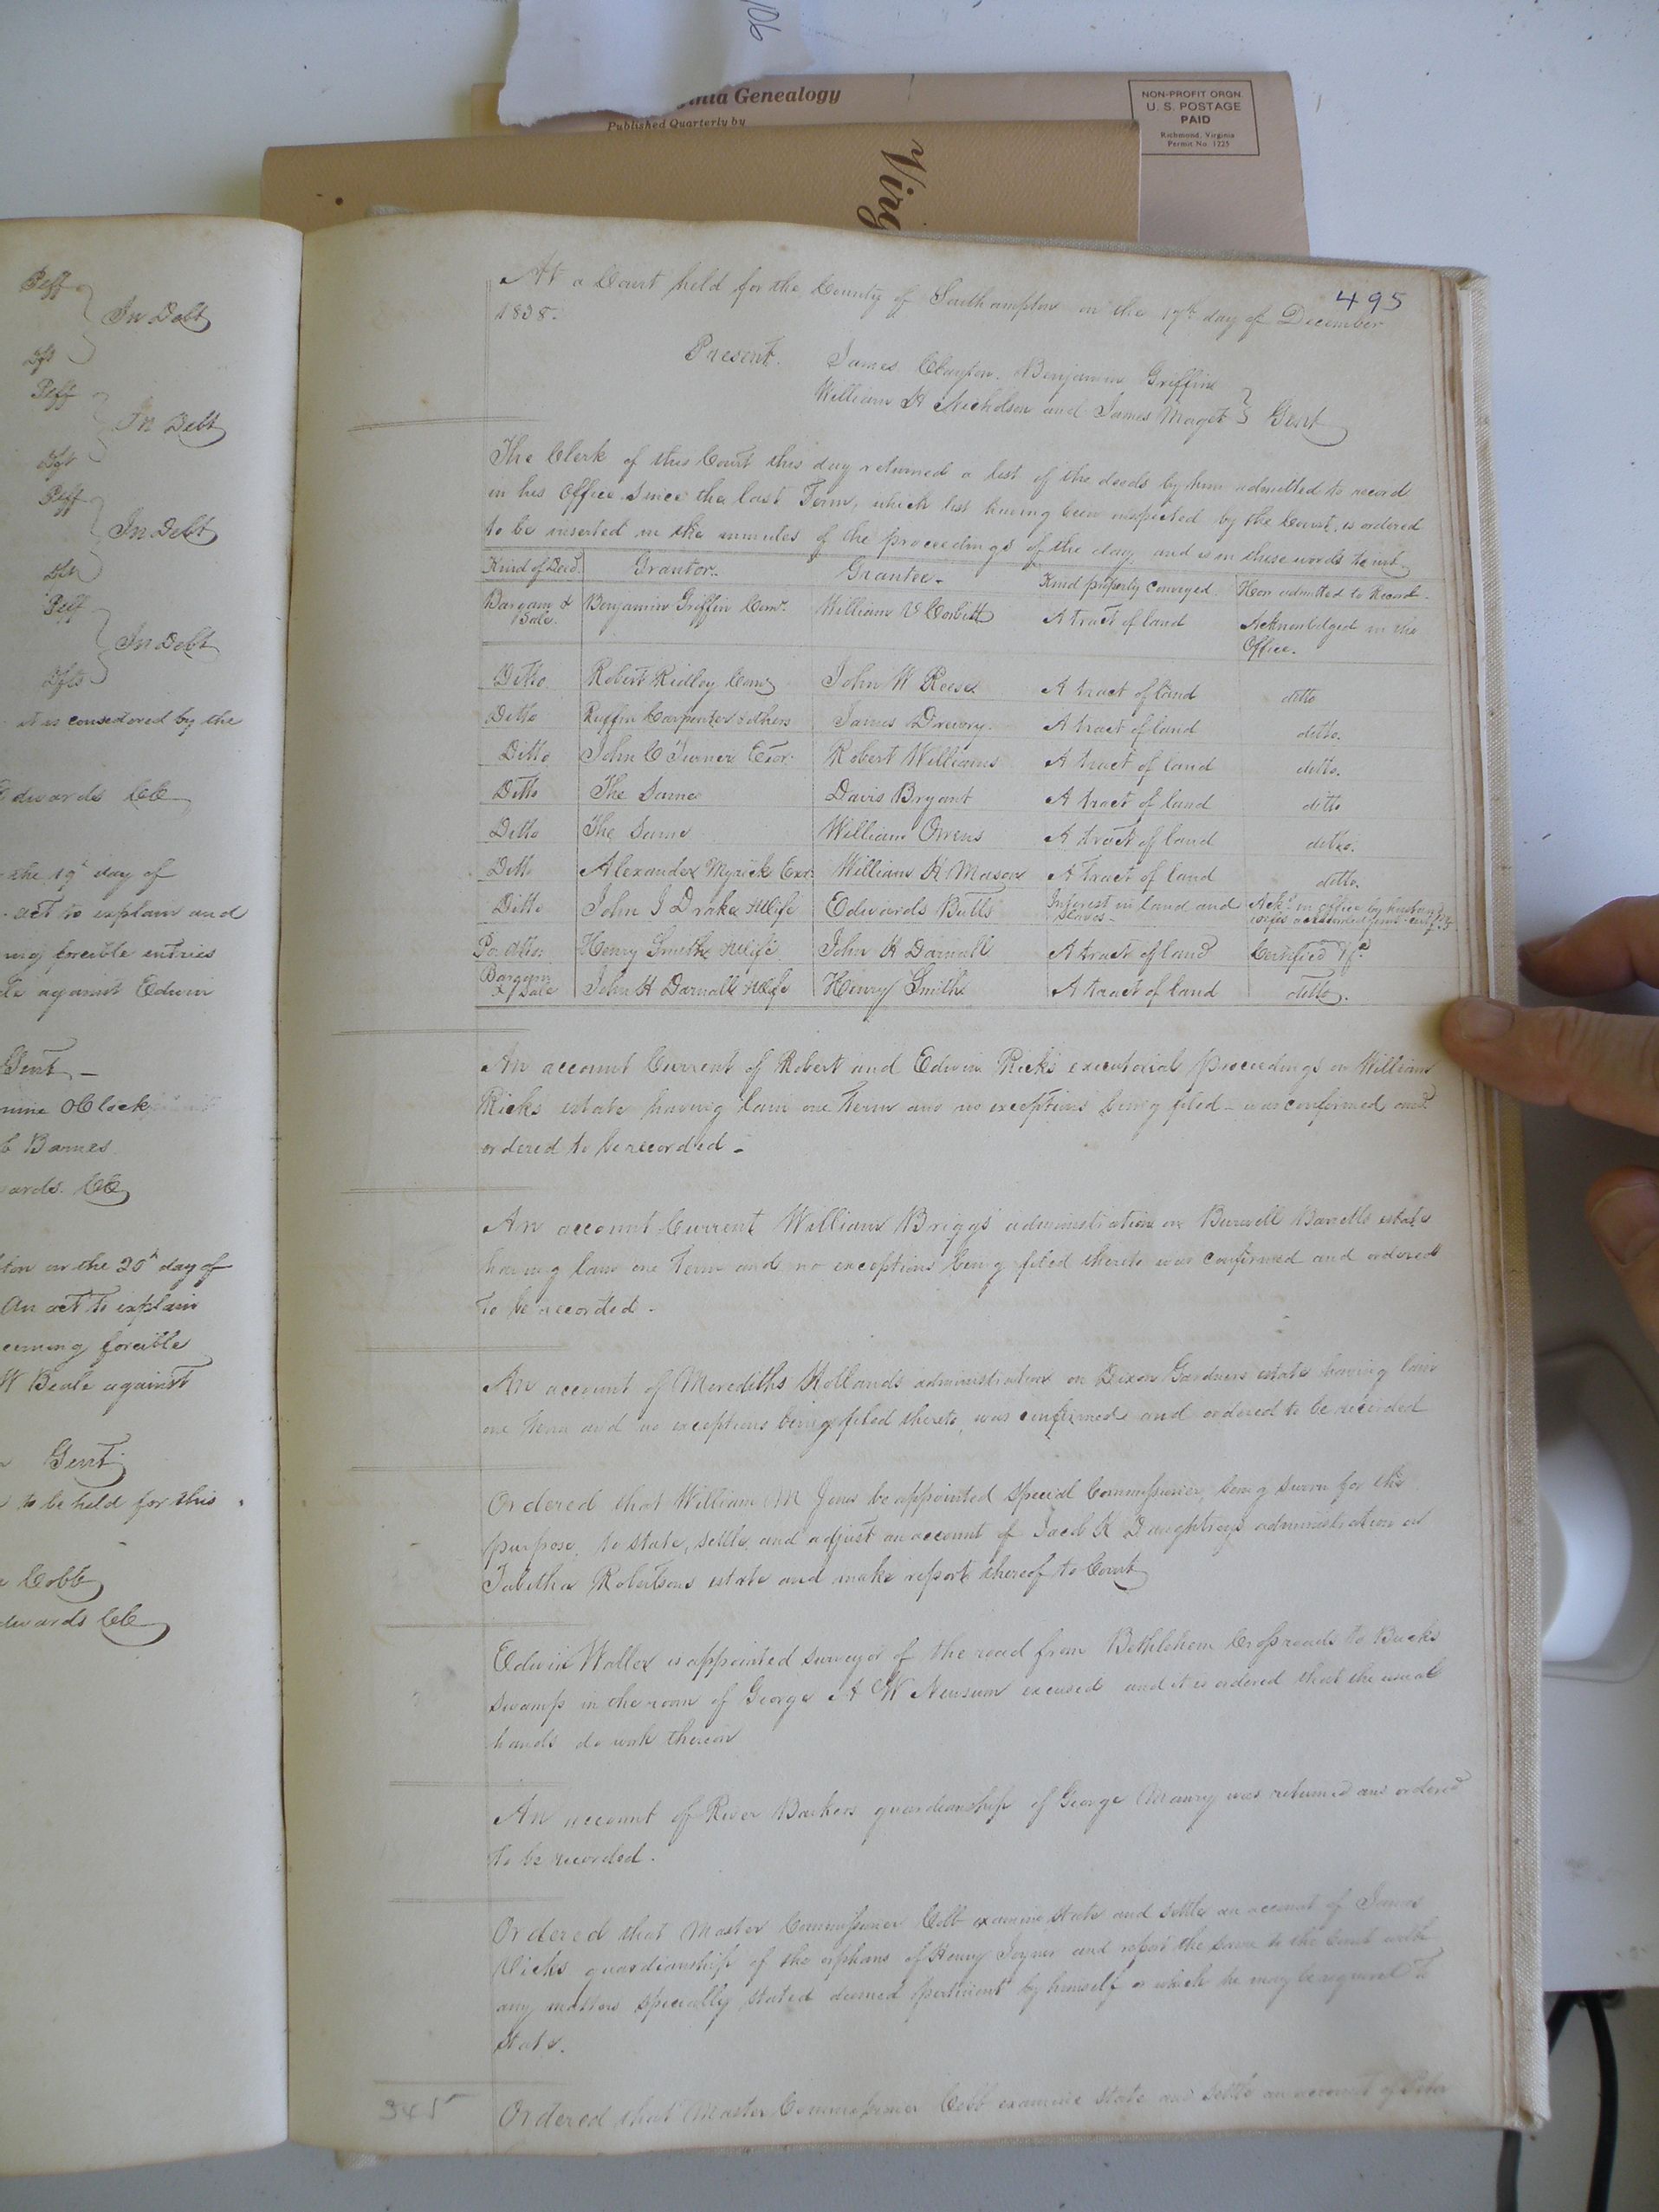 106
Virginia Genealogy
Published Quarterly by
NON-PROFIT ORGN.
U. S. POSTAGE
PAID
Richmond, Virginia
Permit No. 1225
Virg
Peff
In Debt
Dft
Peff
In Debt
Dft
Peff
In Debt
Dft
Peff
In Debt
Dfts
it is considered by the
Edwards CC
the 19th day of
act to explain and
ing forcible entries
against Edwin
Gent
nine OClock
Barnes
ards CC
ton on the 20th day of
An act to explain
cerning forcible
W Beale against
Gent
to be held for this
Cobb
dwards CC
495
At a Court held for the County of Southampton on the 17th day of December
1838.
Present. James Clayton, Benjamin Griffin
William H Nicholson and James Maget } Gent
The Clerk of this Court this day returned a list of the deeds by him admitted to record
in his Office since the last Term, which list having been inspected by the Court, is ordered
to be inserted in the minutes of the proceedings of the day, and is in these words to wit
Kind of Deed. Grantor. Grantee. Kind property conveyed How admitted to Record.
Bargain & Sale. Benjamin Griffin Comr. William V Corbitt A tract of land Acknowledged in the Office.
Ditto Robert Ridley Comr John W Reese A tract of land ditto
Ditto Ruffin Carpenter & others James Drewry. A tract of land ditto.
Ditto John C Turner Exor. Robert Williams A tract of land ditto.
Ditto The Same Davis Bryant A tract of land ditto
Ditto The Same William Owens A tract of land ditto.
Ditto Alexander Myrick Exr William H Mason A tract of land ditto.
Ditto John J Drake & Wife Edwards Butts Interest in land and slaves Ackd in office by husband
Po. Atto. Henry Smith & Wife John H Darnall A tract of land Certified
Bargain & Sale John H Darnall & Wife Henry Smith A tract of land ditto.
An account Current of Robert and Edwin Ricks executorial proceedings on William
Ricks estate having lain one Term and no exceptions being filed was confirmed and
ordered to be recorded
An account Current William Briggs' administration on Burwell Barretts estate
having lain one Term and no exceptions being filed thereto was confirmed and ordered
to be recorded.
An account of Merediths Hollands administration on Dixon Gardners estate having lain
one Term and no exceptions being filed thereto, was confirmed and ordered to be recorded
Ordered that William M Jones be appointed Special Commissioner, being sworn for the
purpose, to state, settle, and adjust an account of Jacob K Daughtreys administration on
Tabitha Robertsons estate and make report thereof to Court
Edwin Waller is appointed surveyor of the road from Bethlehem Crossroads to Bucks
Swamp in the room of George A W Newsum excused and it is ordered that the usual
hands do work thereon
An account of River Barkers guardianship of George Maury was returned and ordered
to be recorded.
Ordered that Master Commissioner Cobb examine state and settle an account of James
Vicks guardianship of the orphans of Henry Joyner and report the same to the Court with
any matters specially stated deemed pertinent by himself or which he may be required to
state.
345
Ordered that Master Commissioner Cobb examine state and settle an account of